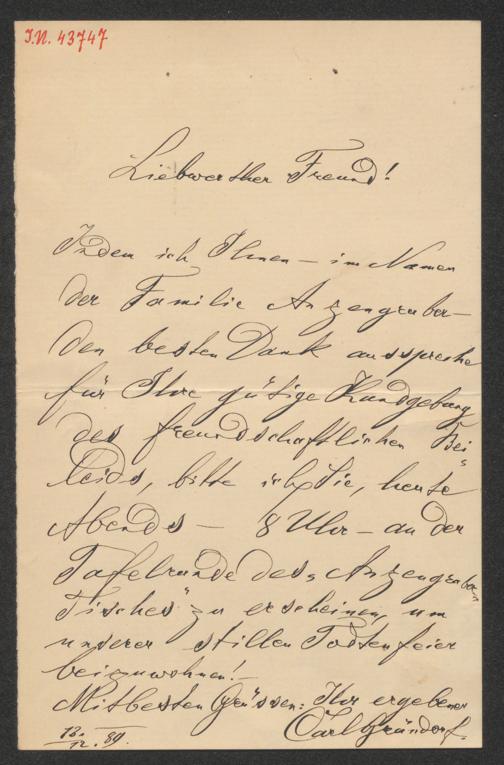 I.N. 43747
Liebwerther Freund!
Indem ich Ihnen – im Namen
der Familie Anzengruber –
den besten Dank ausspreche
für Ihre gütige Kundgebung
des freundschaftlichen Bei-
leids, bitte ich Sie, heute
Abends – 8 Uhr – an der
Tafelrunde des „Anzengruber-
Tisches" zu erscheinen, um
unserer stillen Todtenfeier
beizuwohnen! –
Mit besten Grüssen: Ihr ergebener
Carl Gründorf.
12. 89.